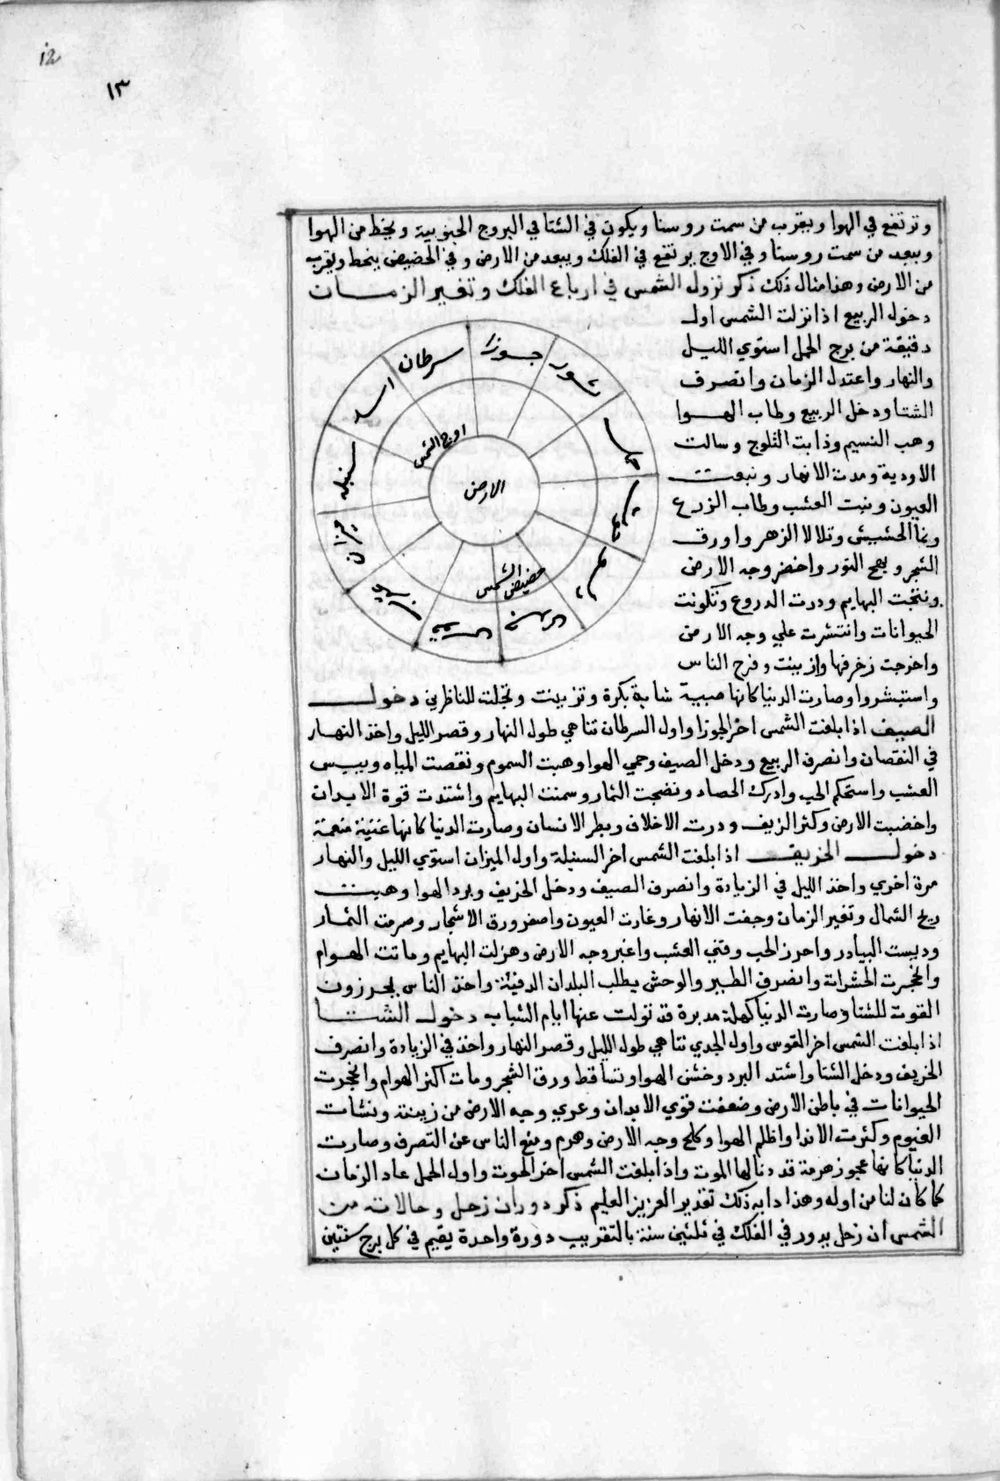 12
١٣
وترتفع في الهوا ويقرب من سمت روسنا ويكون في الشتا في البروج الجنوبية وينحط من الهوا
ويبعد من سمت روسنا وفي الاوج يرتفع في الفلك ويبعد من الارض وفي الحضيض ينحط ويقرب
من الارض وهذا مثال ذلك ذكر نزول الشمس في ارباع الفلك وتغير الزمان
دخول الربيع اذا نزلت الشمس اول
دقيقة من برج الحمل استوي الليل
والنهار واعتدل الزمان وانصرف
الشتا ودخل الربيع وطاب الهوا
وهب النسيم وذابت الثلوج وسالت
الاودية ومدت الانهار ونبعت
العيون ونبت العشب وطاب الزرع
ونما الحشيش وتلالا الزهر واورق
الشجر وبهج النور واخضر وجه الارض
ونتجت البهايم ودرت الدروع وتكونت
الحيوانات وانتشرت علي وجه الارض
واخرجت زخرفها وازينت وفرح الناس
سرطان
جوزا
ثور
اسد
سنبله
ميزان
اوج الشمس
الارض
حضيض الشمس
واستبشروا وصارت الدنيا كانها صبية شابة بكرة وتزينت وتجلت للناظرين دخول
الصيف اذا بلغت الشمس اخر الجوزا واول السرطان تناهي طول النهار وقصر الليل واخذ النهار
في النقصان وانصرف الربيع ودخل الصيف وحمي الهوا وهبت السموم ونقصت المياه ويبيس
العشب واستحكم الحب وادرك الحصاد ونضجت الثمار وسمنت البهايم واشتدت قوة الابدان
واخضبت الارض وكثر الريف ودرت الاخلاف وبطر الانسان وصارت الدنيا كانها غنية منعمة
دخول الخريف اذا بلغت الشمس اخر السنبلة واول الميزان استوي الليل والنهار
مرة اخري واخذ الليل في الزيادة وانصرف الصيف ودخل الخريف وبرد الهوا وهبت
ريح الشمال وتغير الزمان وجفت الانهار وغارت العيون واصفر ورق الاشجار وصرمت الثمار
وديست البيادر واحرز الحب وفني العشب واغبر وجه الارض وهزلت البهايم وماتت الهوام
وانجحرت الحشرات وانصرف الطير والوحش يطلب البلدان الدفيئة واخذ الناس يحرزون
القوت للشتا وصارت الدنيا كهلة مدبرة قد تولت عنها ايام الشباب دخول الشتا
اذا بلغت الشمس اخر القوس واول الجدي تناهي طول الليل وقصر النهار واخذ في الزيادة وانصرف
الخريف ودخل الشتا واشتد البرد وخشن الهوا وتساقط ورق الشجر ومات اكثر الهوام وانجحرت
الحيوانات في باطن الارض وضعفت قوي الابدان وعري وجه الارض من زينته ونشات
الغيوم وكثرت الاندا واظلم الهوا وكلح وجه الارض وهرم ومنع الناس عن التصرف وصارت
الدنيا كانها عجوز هرمة قد دنا لها الموت واذا بلغت الشمس اخر الحوت واول الحمل عاد الزمان
كما كان لنا من اوله وهذا دابه ذلك تقدير العزيز العليم ذكر دوران زحل وحالاته من
الشمس ان زحل يدور في الفلك في ثلثين سنة بالتقريب دورة واحدة يقيم في كل برج سنتين